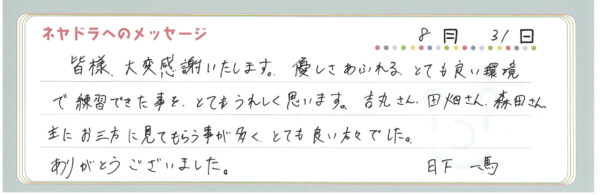 ネヤドラへのメッセージ 8月 31日
皆様、大変感謝いたします。優しさあふれる、とても良い環境
で練習できた事を、とてもうれしく思います。吉丸さん、田畑さん、森田さん
主にお三方に見てもらう事が多く、とても良い方々でした。
ありがとうございました。 日下 一馬